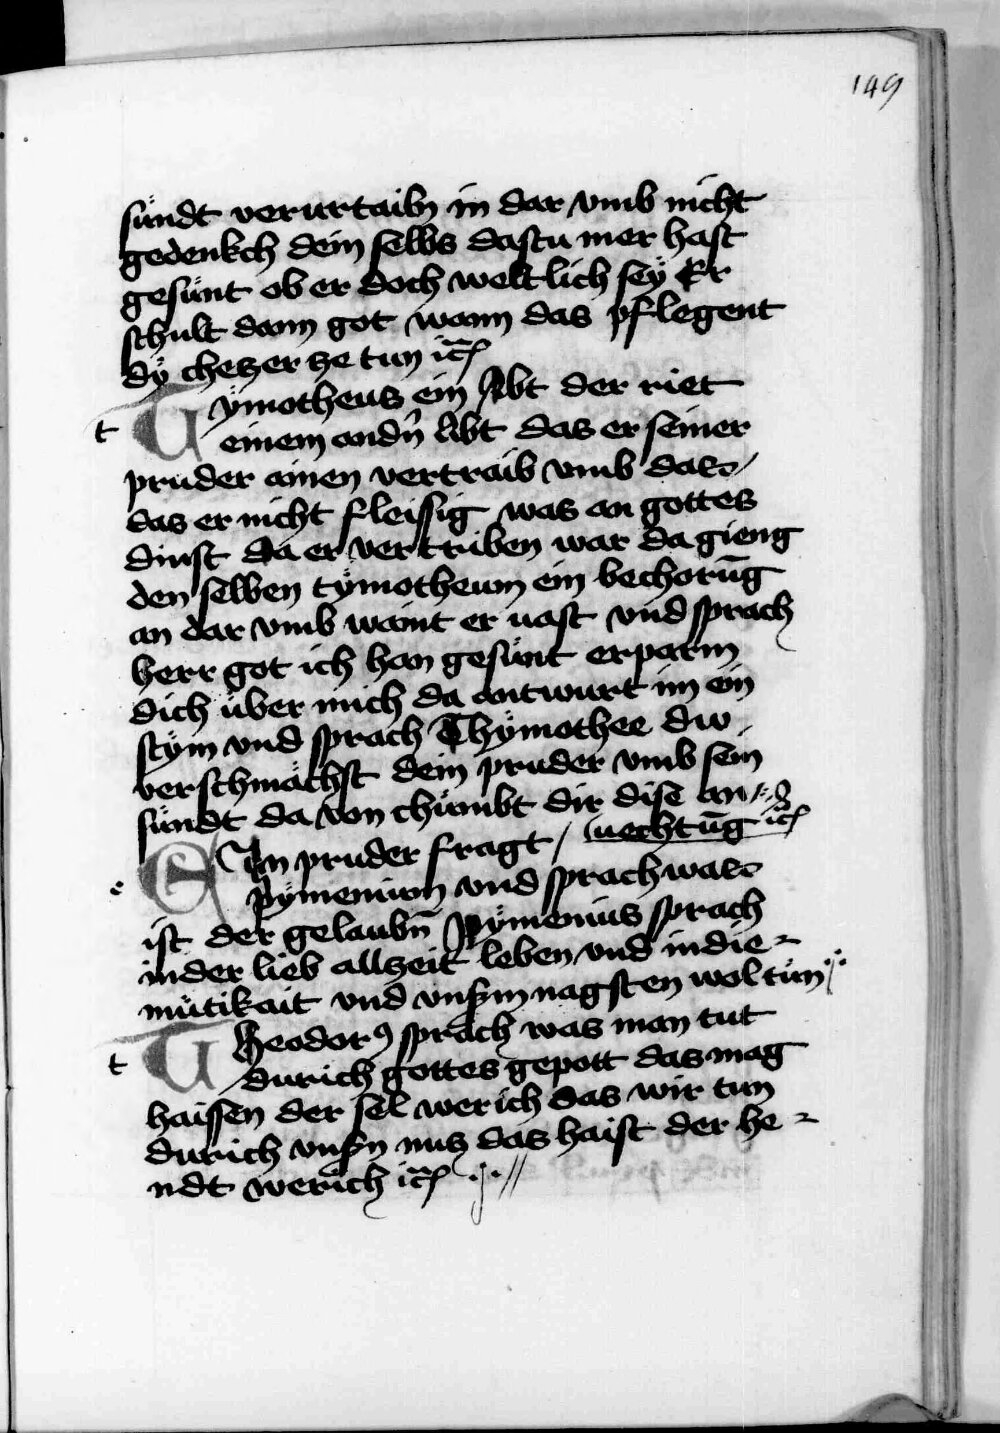 149
sündt verurtailn in dar vmb nicht
gedenkch dein selbs dastu mer hast
gesünt ob er doch weltlich sey Er
schult dann got wann das pflegent
dÿ checzer ze tun ꝛc
Tÿmotheus ein Abt der riet
t
einem andn̄ Abt das er seiner
pruder ainen vertraib vmb das
das er nicht fleissig was an gottes
dinst da er vertriben war da gieng
den selben tÿmotheum ein bechorūg
an dar vmb waint er uast vnd sprach
herr got ich han gesünt erparm
dich über mich da antwurt im ein
stÿm vnd sprach Thÿmothee diw
verschmächst dein pruder vmb sein
sündt da von chümbt dir dise an⸗
EIn pruder fragt / uechtūg ꝛc
e
Pÿmenium vnd sprach was
ist der gelaubn̄ Pÿmenius sprach
in der lieb allzeit leben vnd in die⸗
mütikait vnd vnßm nagsten wol tün
Theodorꝰ sprach was man tut
t
durich gottes gepott das mag
haissen der sel werich das wir tun
durich vnßn nutz das haist der he⸗
ndt werich ꝛc